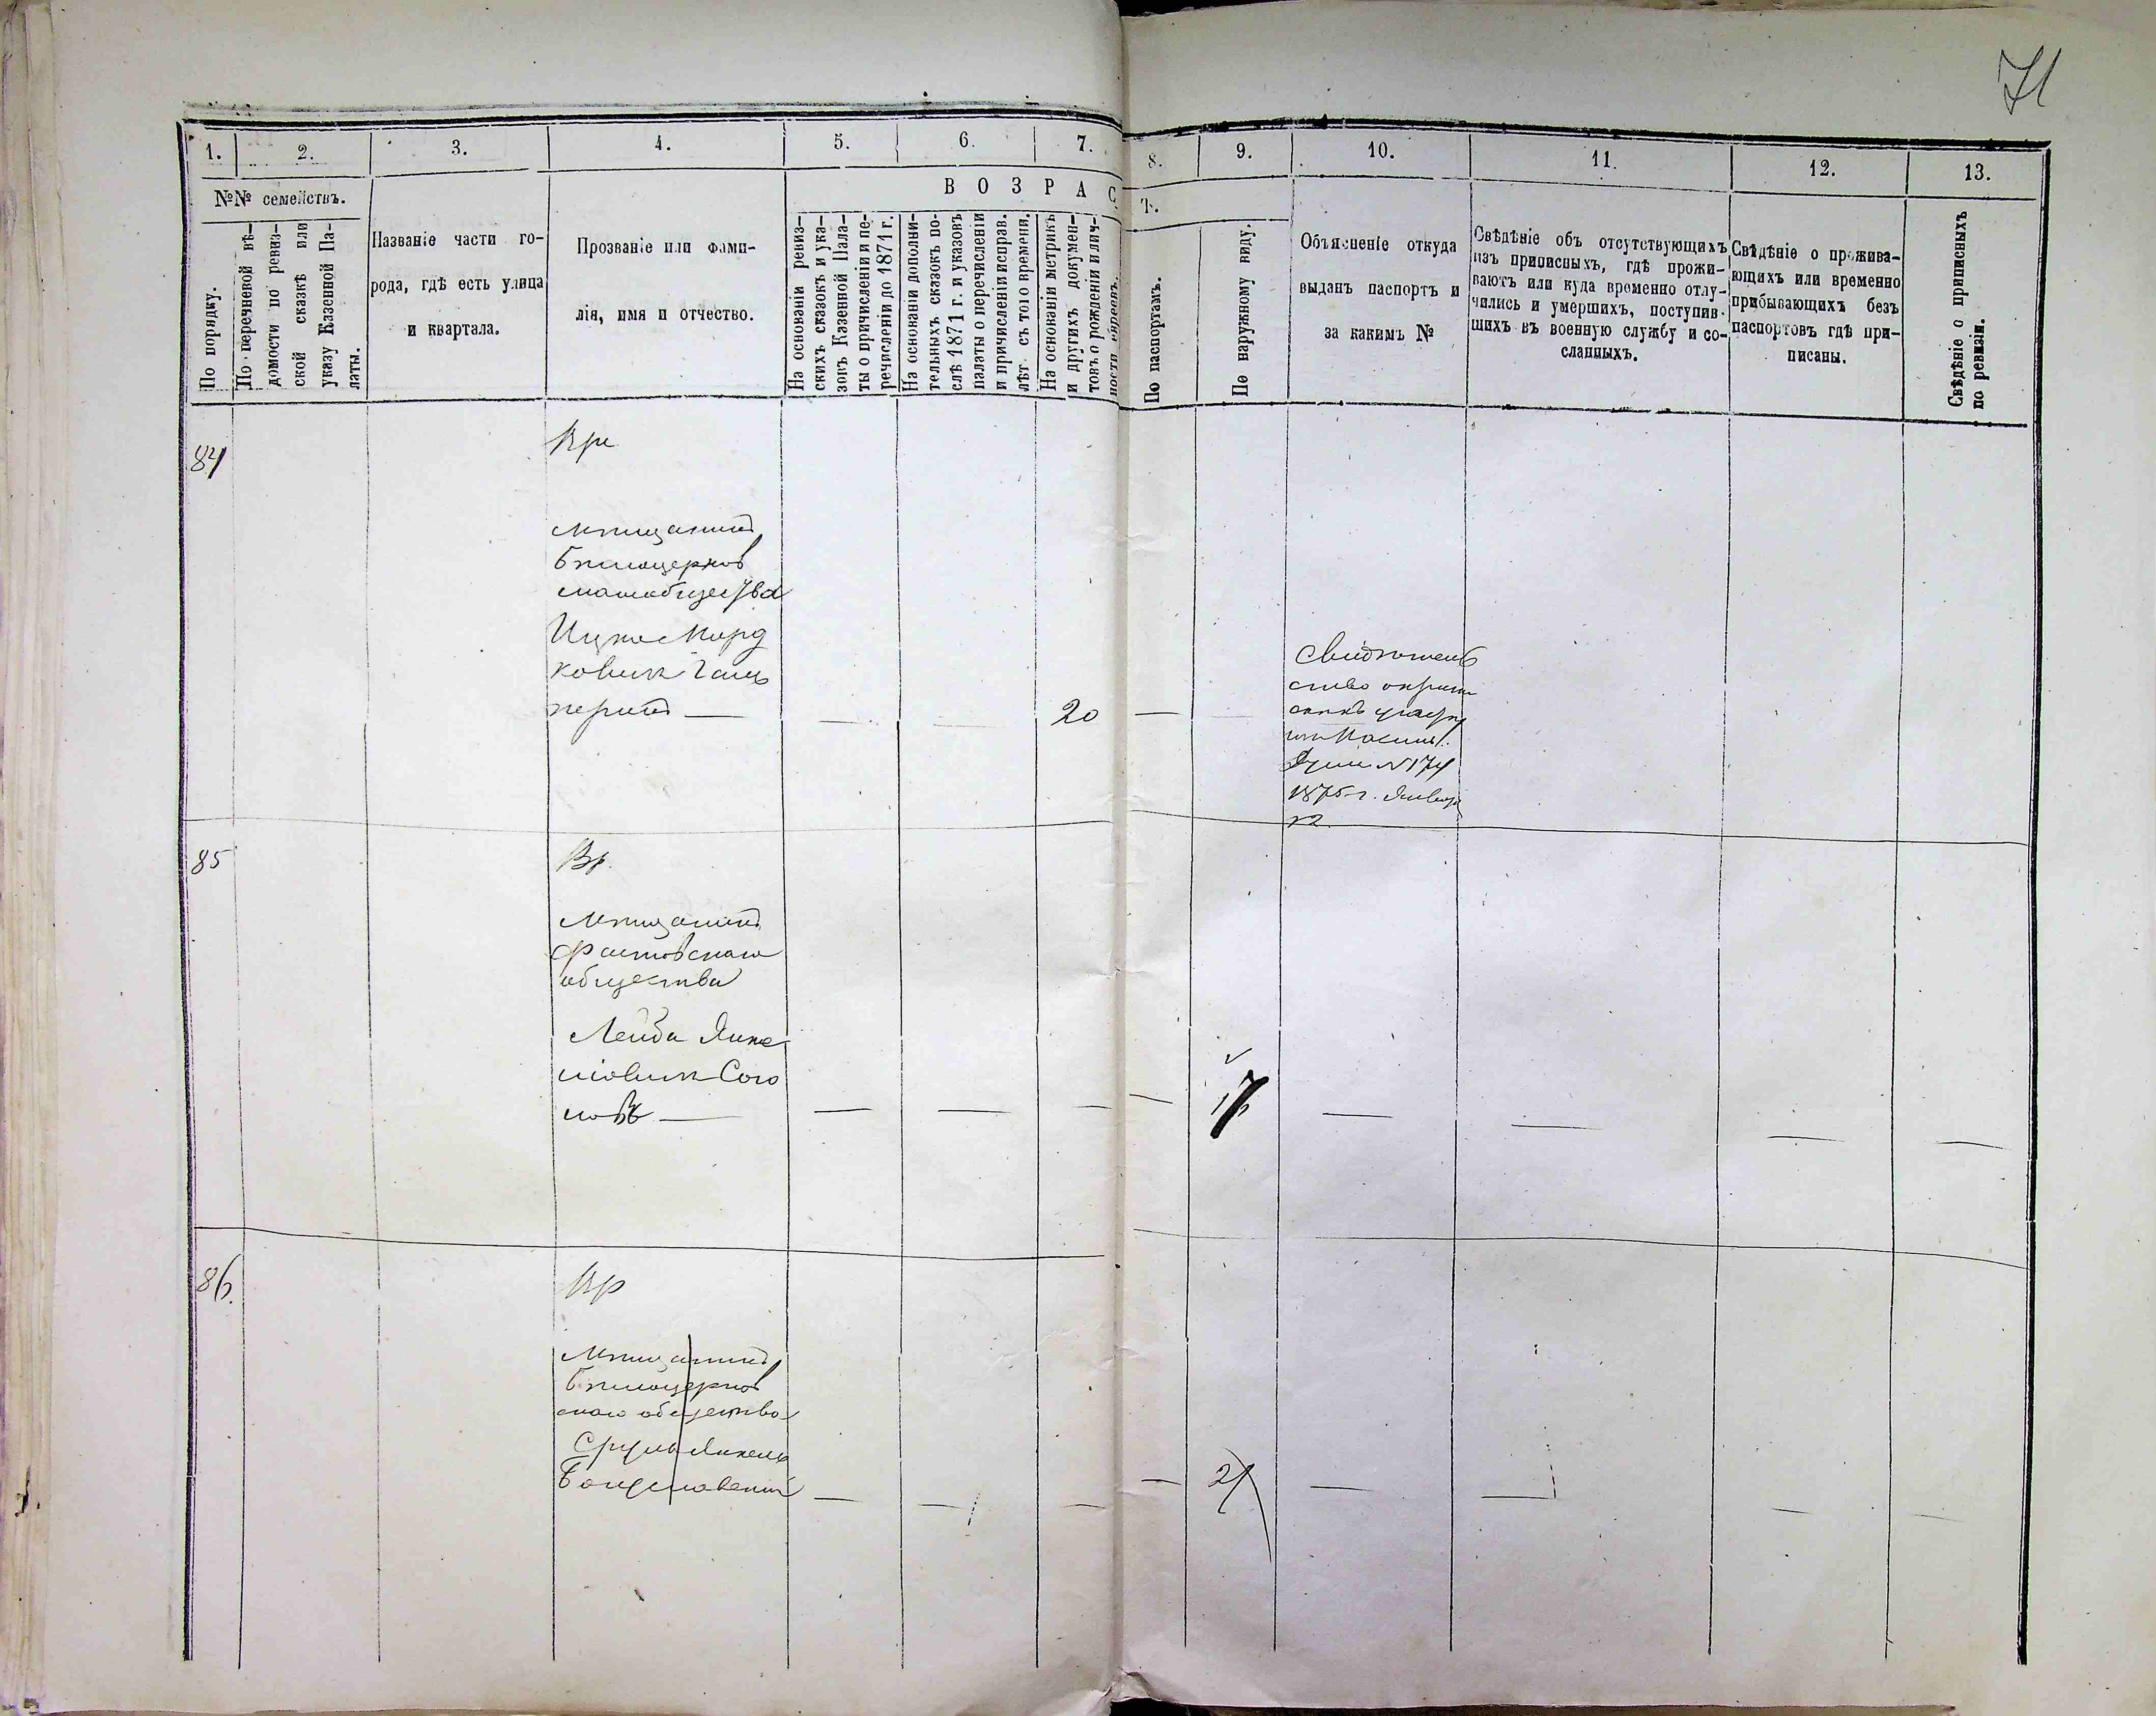 71
1. 2. 3. 4. 5. 6. 7. 8. 9. 10. 11. 12. 13.
№№ семействъ.
По порядку.
По перечневой вѣ-
домости по ревиз-
ской сказкѣ или
указу Казенной Па-
латы.
Названіе части го-
рода, гдѣ есть улица
и квартала.
Прозваніе или фами-
лія, имя и отчество.
ВОЗРАС
Т.
На основаніи ревиз-
скихъ сказокъ и ука-
зовъ Казенной Пала-
ты о причисленіи и пе-
речисленіи до 1871 г.
На основаніи дополни-
тельныхъ сказокъ по-
слѣ 1871 г. и указовъ
палаты о перечисленіи
и причисленіи исправ.
лѣт. съ того времени.
На основаніи метрикъ
и другихъ докумен-
товъ о рожденіи и лич-
ности евреевъ.
По паспортамъ.
По наружному виду.
Объясненіе откуда
выданъ паспортъ и
за какимъ №
Свѣдѣніе объ отсутствующихъ
изъ приписныхъ, гдѣ прожи-
ваютъ или куда временно отлу-
чились и умершихъ, поступив-
шихъ въ военную службу и со-
сланныхъ.
Свѣдѣніе о прожива-
ющихъ или временно
прибывающихъ безъ
паспортовъ гдѣ при-
писаны.
Свѣдѣніе о приписныхъ
по ревизіи.
84
мѣщанинъ
Бѣлоцерков
скаго общества
Ицко Морд
ковичъ Галь
перинъ — 20 —
Свидѣтель
ство
Думы N 174
1875 г. Января
85
Вр.
Мѣщанинъ
Фастовскаго
общества
Лейба Янке
ліовичъ Соко
ловъ — — — — — 17 — — — —
86.
Мѣщанинъ
Бѣлоцерков
скаго общества
Сруль Янкель
Богуславскій — — — — 21 — — — —